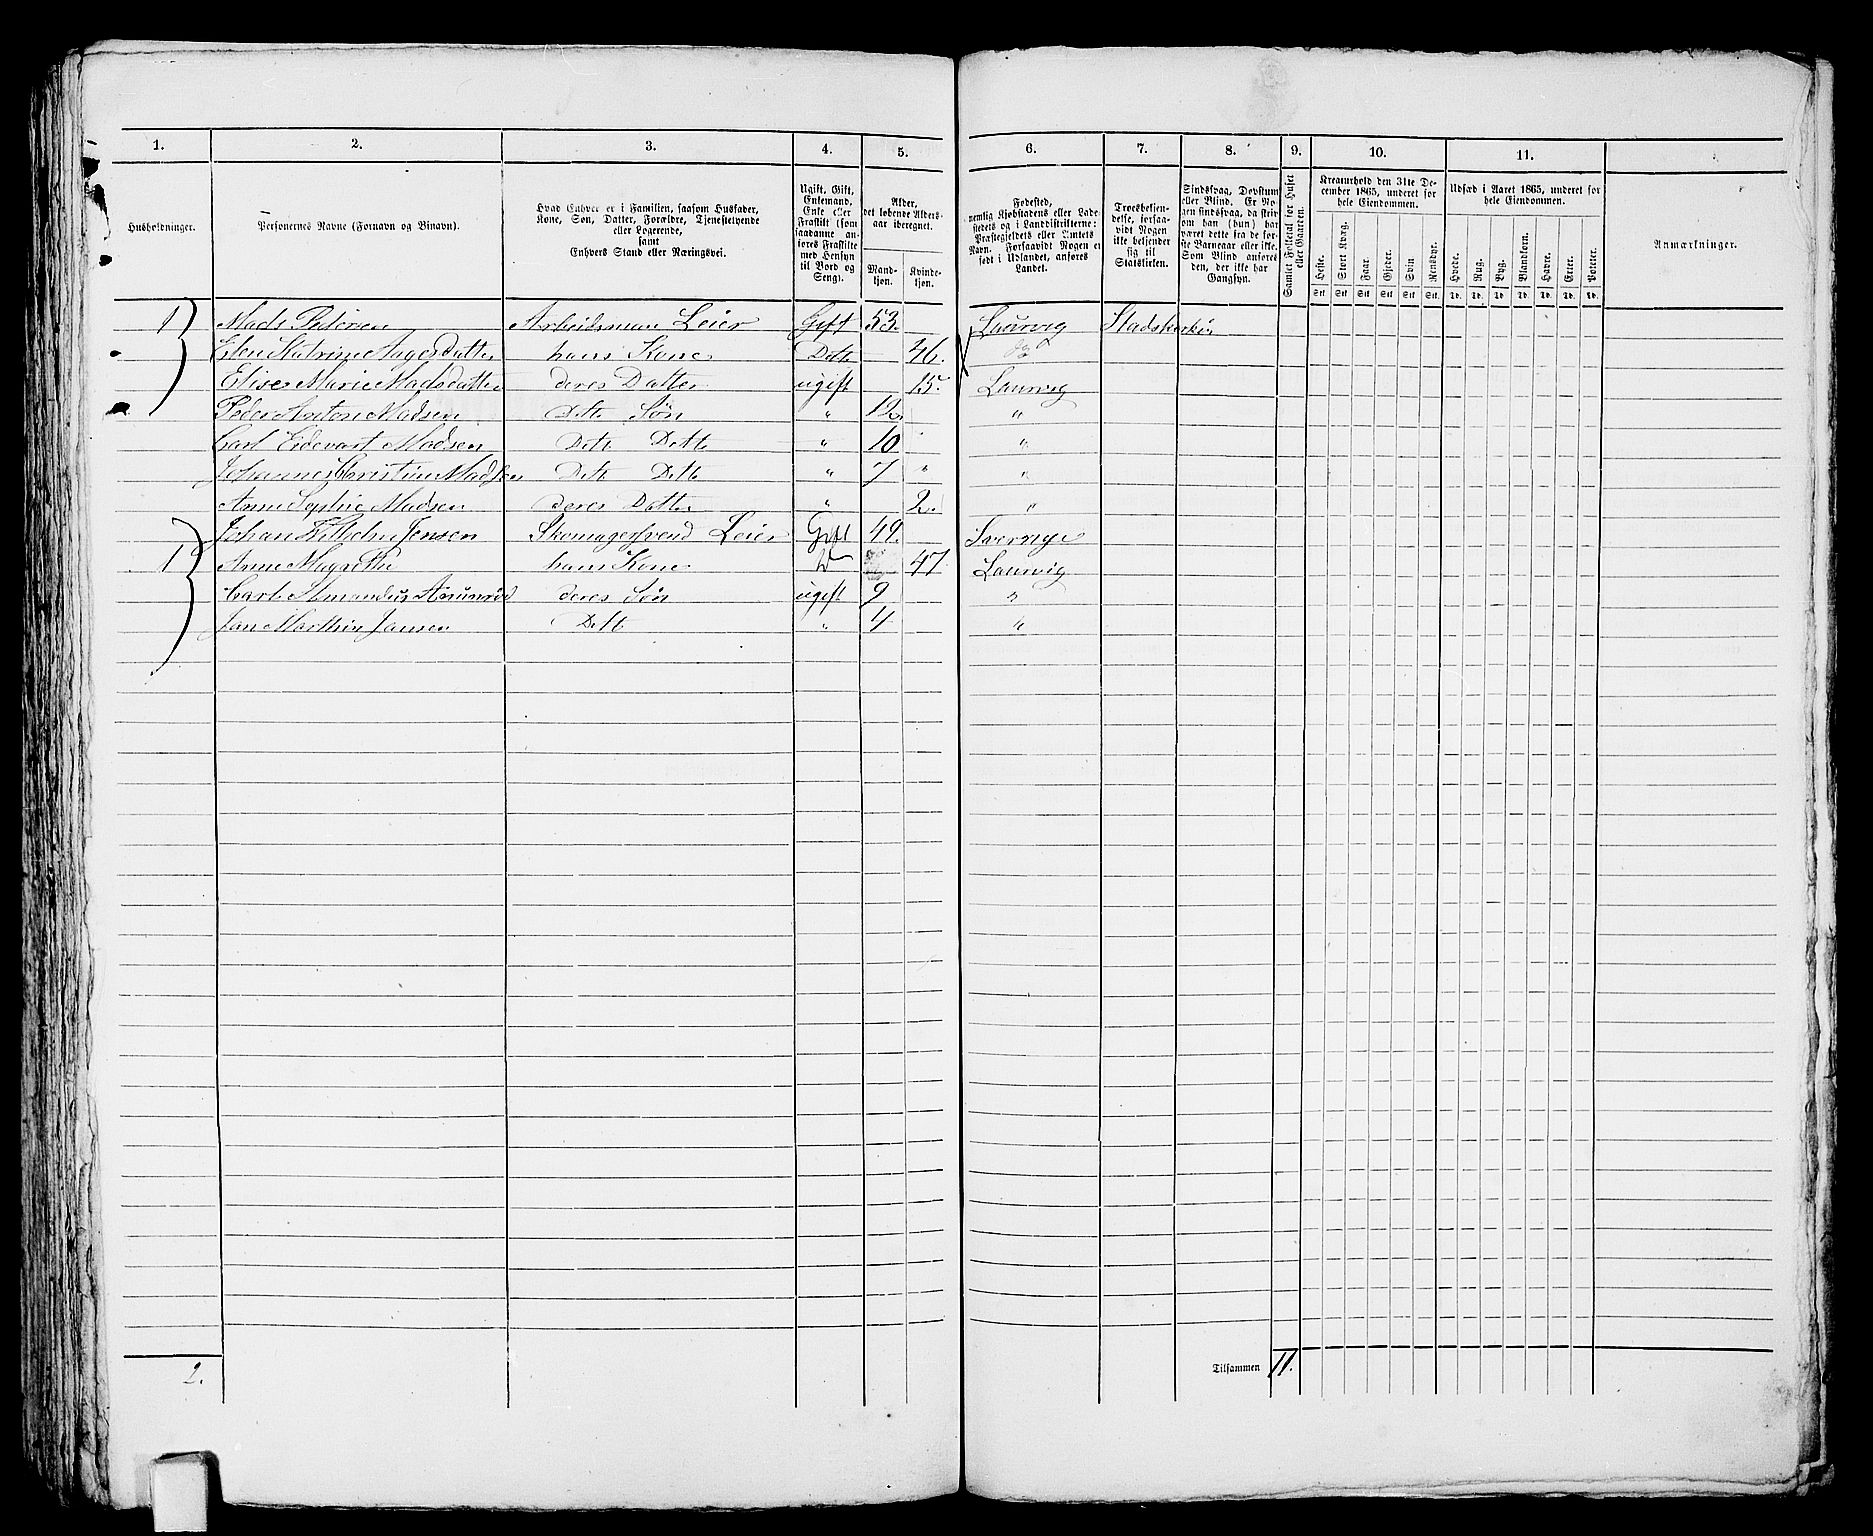 1. 2. 3. 4. 5. 6. 7. 8. 9. 10. 11.
Husholdninger.
Personernes Navne (Fornavn og Binavn).
Hvad Enhver er i Familien, saasom Husfader,
Kone, Søn, Datter, Forældre, Tjenestetyende
eller Logerende,
samt
Enhvers Stand eller Næringsvei.
Ugift, Gift,
Enkemand,
Enke eller
Fraskilt (som
saadanne an-
føres Fraskilte
med Hensyn
til Bord og
Seng).
Alder,
det løbende Alders-
aar iberegnet.
Mand-
kjøn.
Kvinde-
kjøn.
Fødested,
nemlig Kjøbstadens eller Lade-
stedets og i Landdistrikterne:
Præstegjeldets eller Amtets
Navn. Forsaavidt Nogen er
født i Udlandet, anføres
Landet.
Troesbekjen-
delse, forsaa-
vidt Nogen
ikke bekjender
sig til
Statskirken.
Sindssvag, Døvstum
eller Blind. Er No-
gen sindssvag, da skriv
om han (hun) har
været dette fra de før-
ste Barneaar eller ikke.
Som Blind anføres
den, der ikke har
Gangsyn.
Samlet Folketal for Huset
eller Gaarden.
Kreaturhold den 31te De-
cember 1865, underet for
hele Eiendommen.
Heste. Stort Kvæg. Faar. Gjeder. Svin Rensdyr.
Stk Stk Stk Stk Stk Stk.
Udsæd i Aaret 1865, underet for
hele Eiendommen.
Hvede. Rug. Byg. Blandkorn. Havre. Erter. Poteter.
Td. Td. Td. Td. Td. Td. Td.
Anmærkninger.
1 Mads Pedersen Arbeidsman Leier Gift 53. Laurvig Stadskirken
Elen Katrine Aagesdatter hans Kone Dette 46. do
Elise Marie Madsdatter deres Datter ugift 15. Laurvig
Peder Anton Madsen Dette Søn " 12 "
Carl Edevart Madsen Dette Dette " 10 "
Johannes Christian Madsen Dette Dette " 7 " "
Anne Sophie Madsen deres Datter " 2. "
1 Johan Vilhelm Jensen Skomagersvend Leier Gift 49. Sverrige
Anne Magrethe hans Kone 47 Laurvig
Carl Amandus deres Søn ugift 9 "
Jan Marthin Jansen Dett " 4 "
2.
Tilsammen 11.